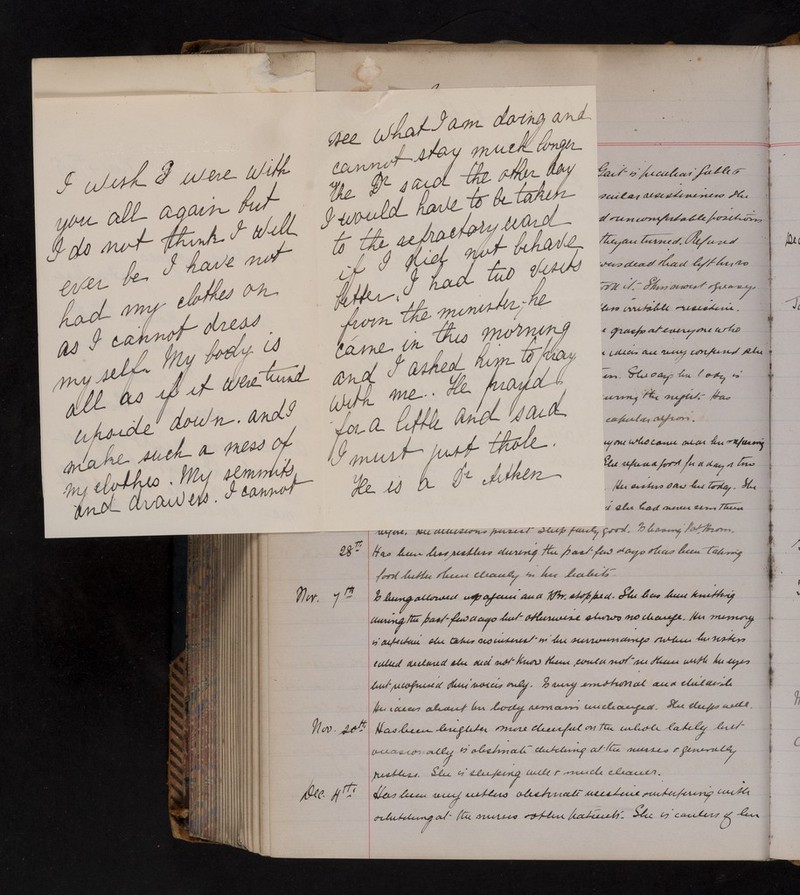 I wish I were with
you all again but
I do not think I will
ever be. I have not
had my clothes on
as I cannot dress
myself. My body is
all as if it were turnd
upside down. and I
make such a mess of
my clothes. My semmits
and drawers. I cannot
see what I am doing and
cannot stay much longer
The Dr said the other day
I would have to be taken
to the refractory ward
if I did not behave
better, I had two visits
from the minister, he
came in this morning
and I asked him to pray
with me.. He prayd
for a little and said
I must just thole.
He is a Dr Aitken
Gait is peculiar
resistiveness She
uncomfortable positions
they are turned. Refused
was dead & had left her
Skin greasy
irritable resistive.
grasps at everyone who
ideas are very confused she
She says her body is
during the night. Has
anyone who came near her refusing
She refused food for a day or two
Her sisters saw her today. She
she had never seen them
Her delusions persist Sleep fairly good.
28th Has been less restless during the past few days & has been taking
food better & been cleanly in her habits.
Nov. 7th Is being allowed up again and stopped. She has been knitting
during the past few days but otherwise shows no change. Her memory
is defective she takes no interest in her surroundings & when her sisters
called declared she did not know them, could not see them with her eyes
but recognised their voices only. Is very emotional and childish
Her ideas about her body remain unchanged. She sleeps well.
Nov. 20th Has been brighter & more cheerful on the whole lately but
occasionally is obstinate clutching at the nurses & generally
restless. She is sleeping well & much cleaner.
Dec. 4th Has been very restless obstinate resistive & interfering with
& clutching at the nurses & other patients. She is careless of her